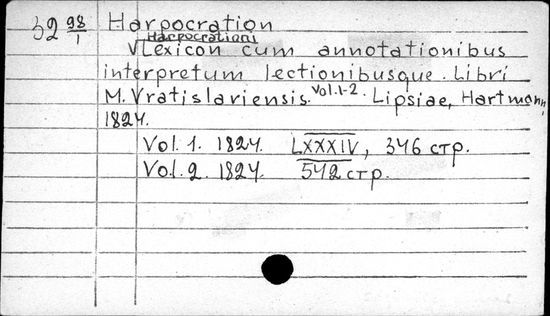 32 98/1 Harpocration
Harpocrationi
V Lexicon cum annotationibus
interpretum lectionibusque. Libri
M. Vratislaviensis. Vol. 1-2. Lipsiae, Hartmann,
1824.
Vol. 1. 1824. LXXXIV, 346 стр.
Vol. 2. 1824. 542 стр.